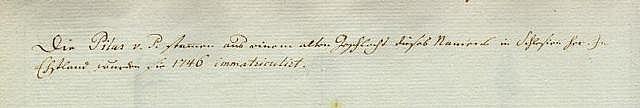 Die Pilar v. P. stammen aus einem alten Geschlecht dieses Namens in Schlesien her. In
Ehstland wurden sie 1746 immatriculirt.